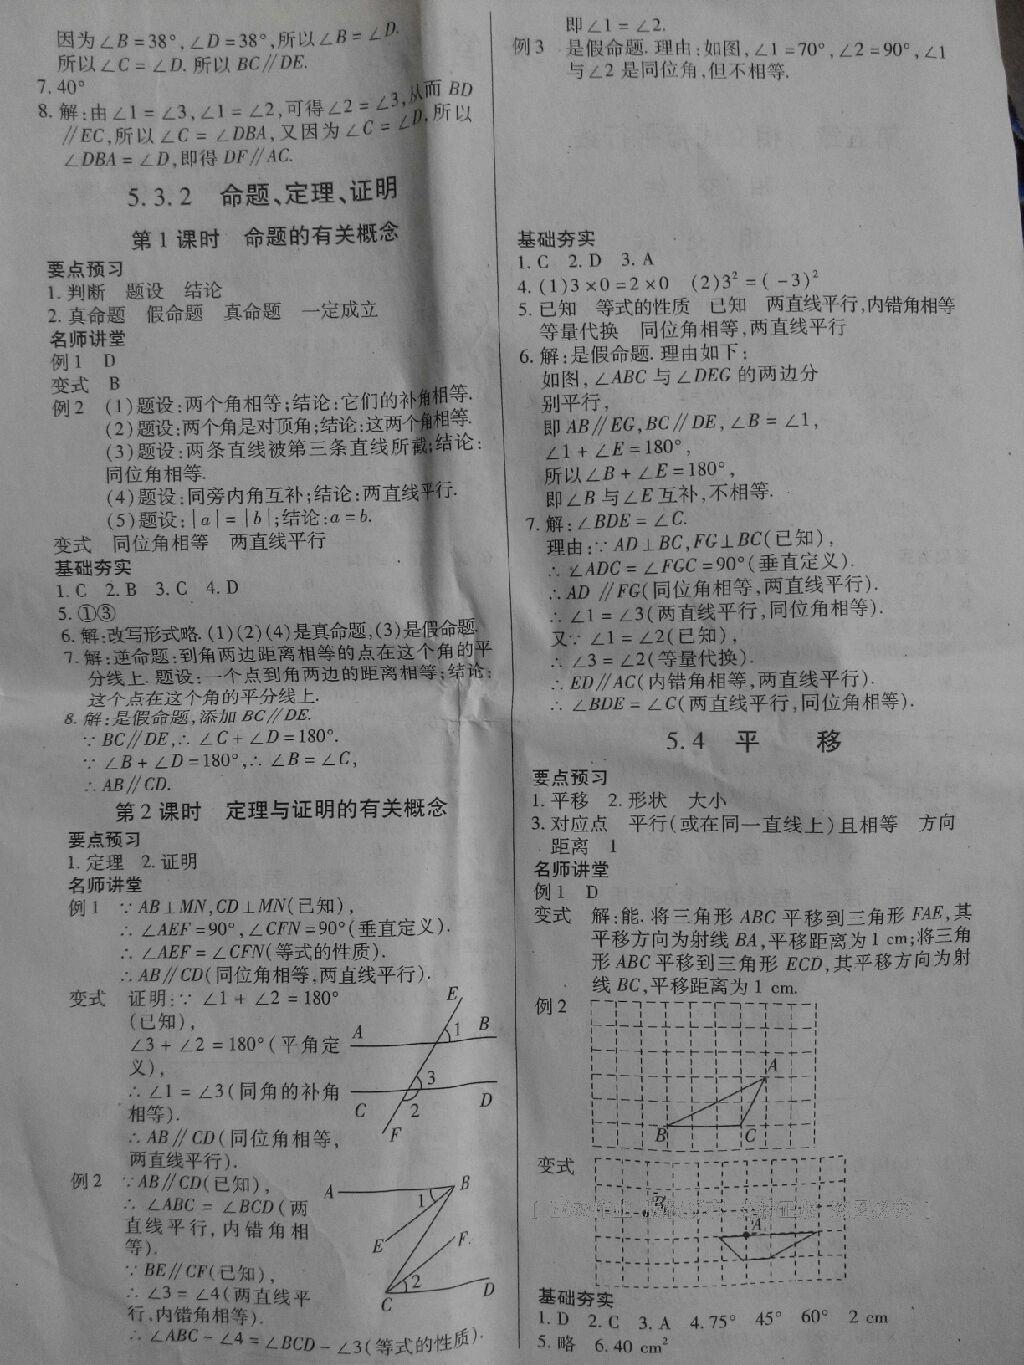 因为∠B=38°,∠D=38°,所以∠B=∠D.
所以∠C=∠D.所以BC∥DE.
7.40°
8.解:由∠1=∠3,∠1=∠2,可得∠2=∠3,从而BD
∥EC,所以∠C=∠DBA,又因为∠C=∠D,所以
∠DBA=∠D,即得DF∥AC.
5.3.2 命题、定理、证明
第1课时 命题的有关概念
要点预习
1.判断 题设 结论
2.真命题 假命题 真命题 一定成立
名师讲堂
例1 D
变式 B
例2 (1)题设:两个角相等;结论:它们的补角相等.
(2)题设:两个角是对顶角;结论:这两个角相等.
(3)题设:两条直线被第三条直线所截;结论:
同位角相等.
(4)题设:同旁内角互补;结论:两直线平行.
(5)题设:|a|=|b|;结论:a=b.
变式 同位角相等 两直线平行
基础夯实
1.C 2.B 3.C 4.D
5.①③
6.解:改写形式略.(1)(2)(4)是真命题,(3)是假命题.
7.解:逆命题:到角两边距离相等的点在这个角的平
分线上.题设:一个点到角两边的距离相等;结论:
这个点在这个角的平分线上.
8.解:是假命题,添加BC∥DE.
∵BC∥DE,∴∠C+∠D=180°.
∵∠B+∠D=180°,∴∠B=∠C,
∴AB∥CD.
第2课时 定理与证明的有关概念
要点预习
1.定理 2.证明
名师讲堂
例1 ∵AB⊥MN,CD⊥MN(已知),
∴∠AEF=90°,∠CFN=90°(垂直定义).
∴∠AEF=∠CFN(等式的性质).
∴AB∥CD(同位角相等,两直线平行).
变式 证明:∵∠1+∠2=180°
(已知),
∠3+∠2=180°(平角定
义),
∴∠1=∠3(同角的补角
相等).
∴AB∥CD(同位角相等,
两直线平行).
E
A 1 B
3
C 2 D
F
例2 ∵AB∥CD(已知),
∴∠ABC=∠BCD(两
直线平行,内错角相
等).
∵BE∥CF(已知),
∴∠3=∠4(两直线平
行,内错角相等).
∴∠ABC-∠4=∠BCD-∠3(等式的性质).
A 1 B
E F
C 2 D
即∠1=∠2.
例3 是假命题.理由:如图,∠1=70°,∠2=90°,∠1
与∠2是同位角,但不相等.
基础夯实
1.C 2.D 3.A
4.(1)3×0=2×0 (2)3²=(-3)²
5.已知 等式的性质 已知 两直线平行,内错角相等
等量代换 同位角相等,两直线平行
6.解:是假命题.理由如下:
如图,∠ABC与∠DEG的两边分
别平行,
即AB∥EG,BC∥DE,∠B=∠1,
∠1+∠E=180°,
所以∠B+∠E=180°,
即∠B与∠E互补,不相等.
7.解:∠BDE=∠C.
理由:∵AD⊥BC,FG⊥BC(已知),
∴∠ADC=∠FGC=90°(垂直定义).
∴AD∥FG(同位角相等,两直线平行).
∴∠1=∠3(两直线平行,同位角相等).
又∵∠1=∠2(已知),
∴∠3=∠2(等量代换).
∴ED∥AC(内错角相等,两直线平行).
∴∠BDE=∠C(两直线平行,同位角相等).
5.4 平 移
要点预习
1.平移 2.形状 大小
3.对应点 平行(或在同一直线上)且相等 方向
距离 1
名师讲堂
例1 D
变式 解:能.将三角形ABC平移到三角形FAE,其
平移方向为射线BA,平移距离为1 cm;将三角
形ABC平移到三角形ECD,其平移方向为射
线BC,平移距离为1 cm.
例2
A
B C
变式
B
A
基础夯实
1.D 2.C 3.A 4.75° 45° 60° 2 cm
5.略 6.40 cm²